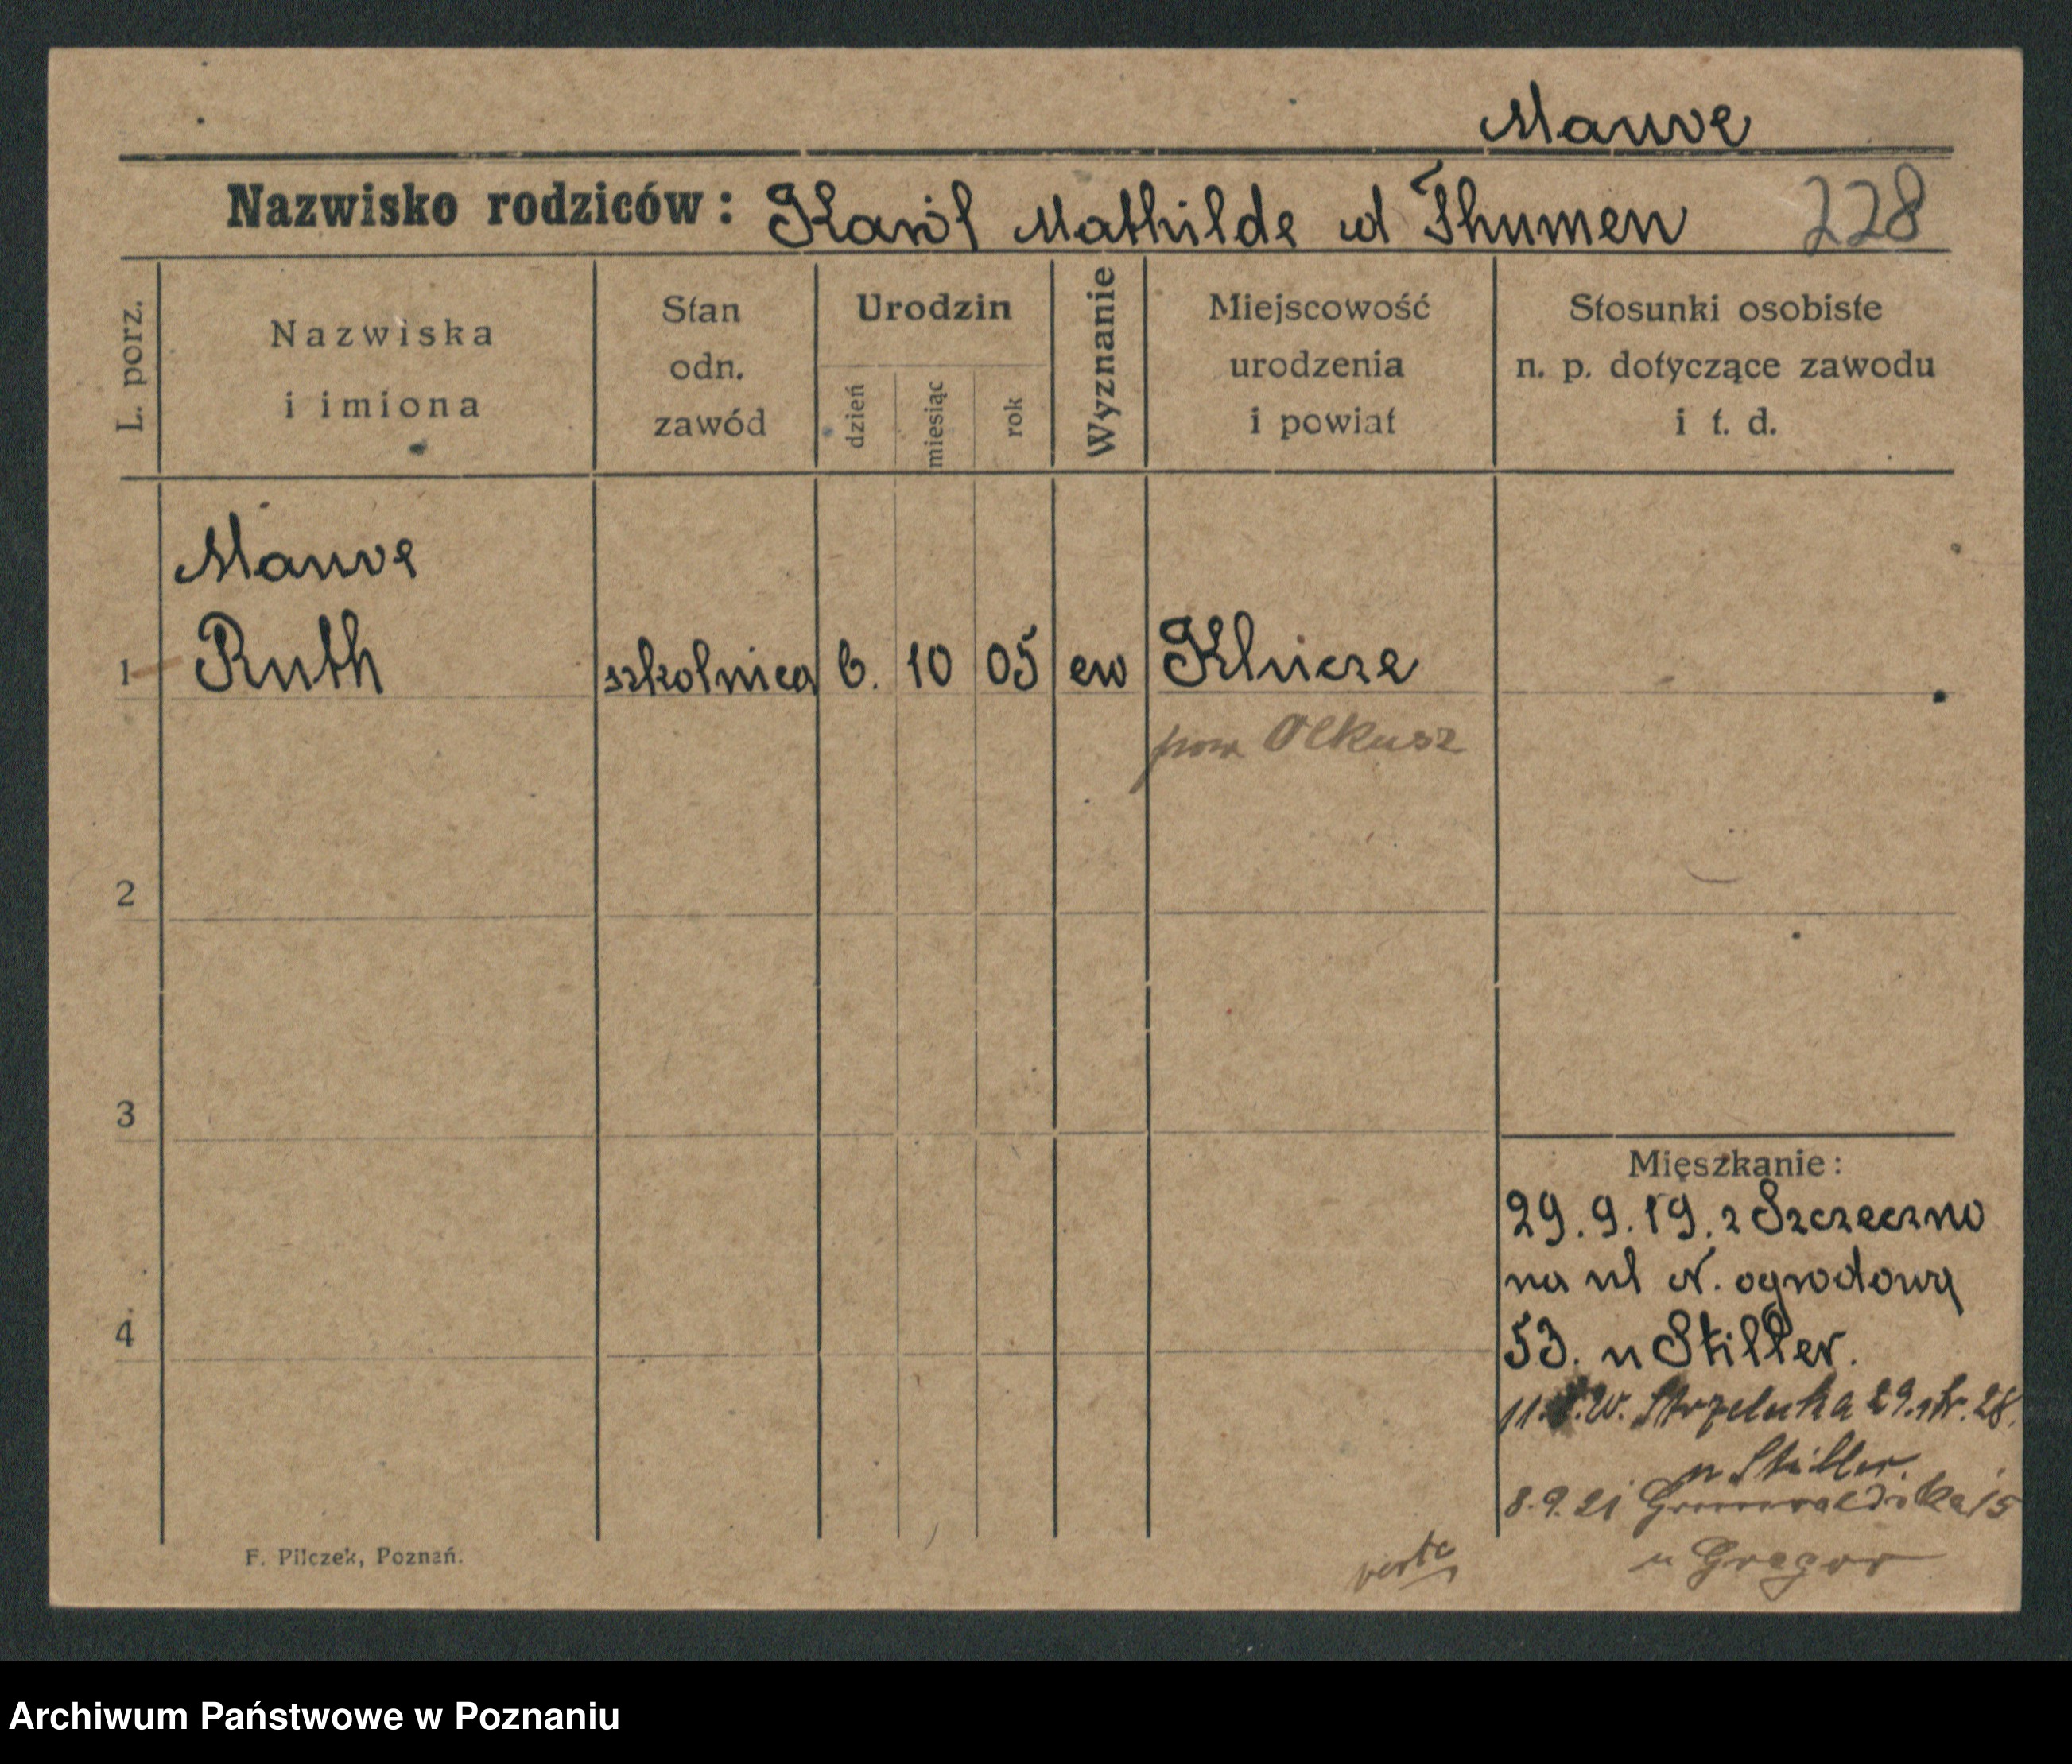 Mauve
Nazwisko rodziców: Karól Mathilde ud Thumen 228
L. porz.
Nazwiska i imiona
Stan odn. zawód
Urodzin
dzień
miesiąc
rok
Wyznanie
Miejscowość urodzenia i powiat
Stosunki osobiste n. p. dotyczące zawodu i t. d.
Mauve
1 Ruth szkolnica 6. 10 05 ew Klucze
pow Olkusz
2
3
Mieszkanie:
29.9.19. z Szczeczno
na ul N. ogrodową
4
53. u Stiller.
11. W. Strzelecka 29. str. 28.
u Stiller.
8.9.21 Grunwaldzka 15
u Gregor
verte
F. Pilczek, Poznań.
Archiwum Państwowe w Poznaniu